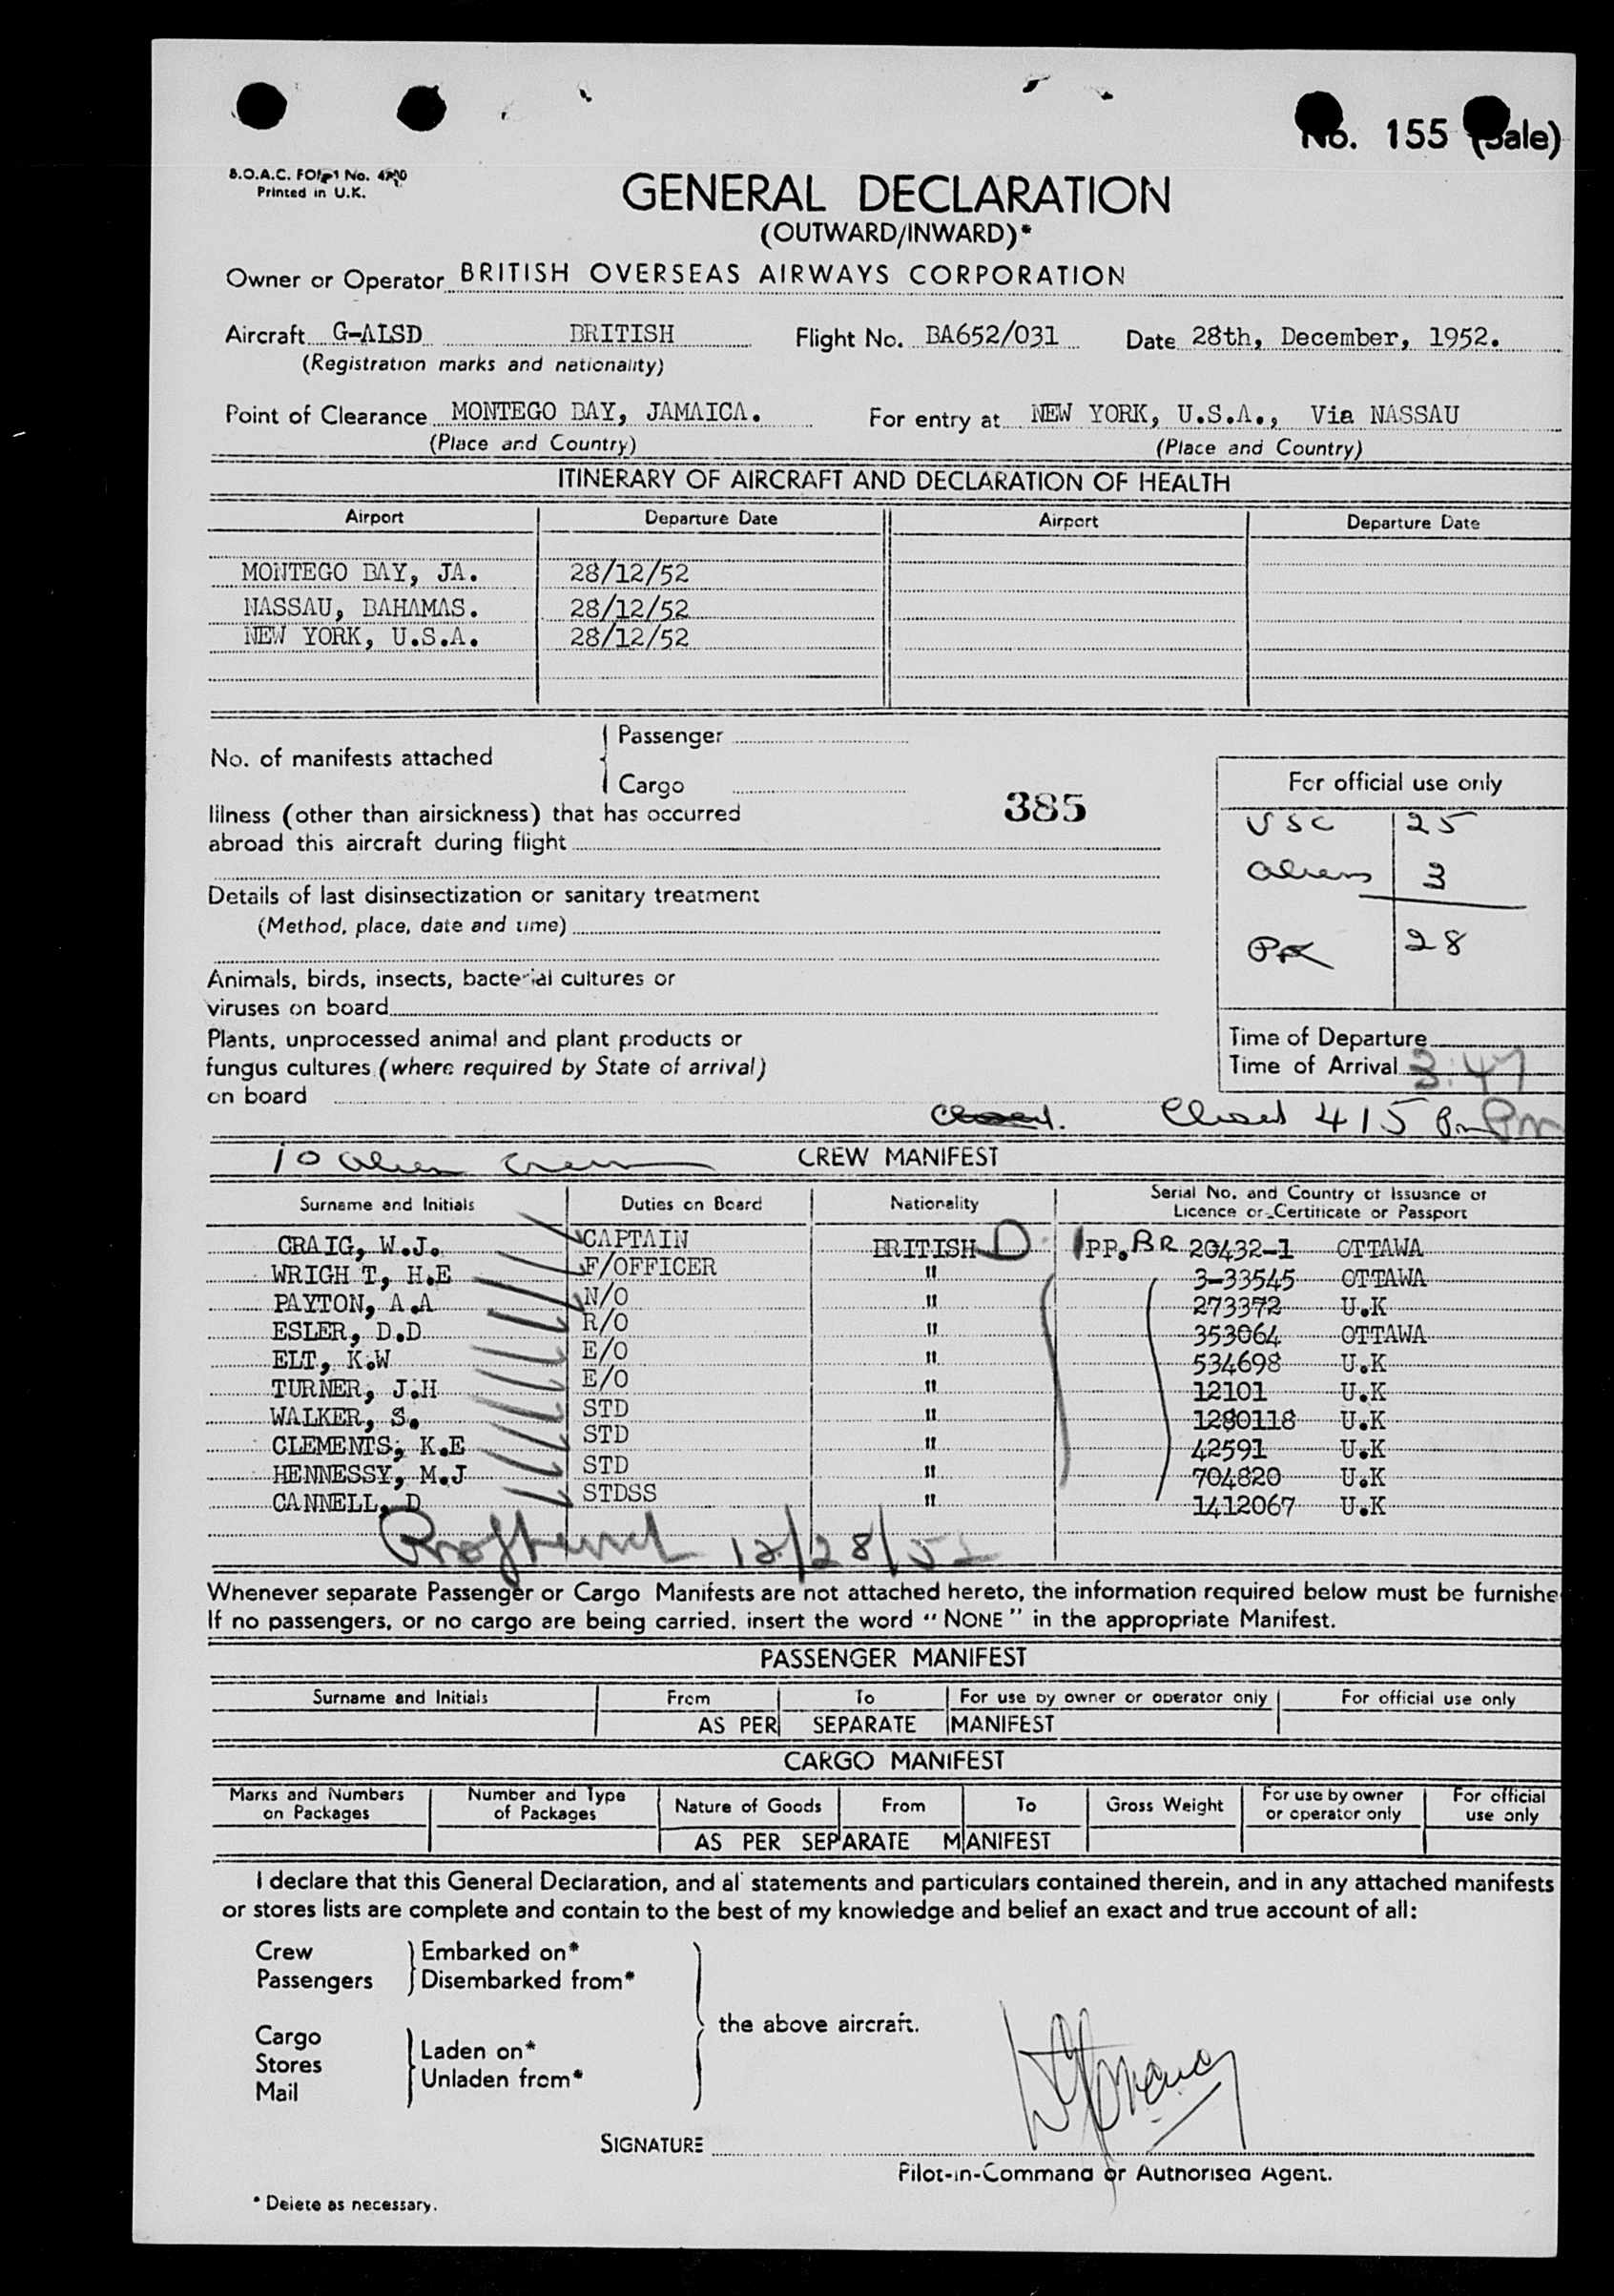 No. 155 (Sale)
B.O.A.C. FORM No.
Printed in U.K.
GENERAL DECLARATION
(OUTWARD/INWARD)*
Owner or Operator BRITISH OVERSEAS AIRWAYS CORPORATION
Aircraft G-ALSD BRITISH Flight No. BA652/031 Date 28th, December, 1952.
(Registration marks and nationality)
Point of Clearance MONTEGO BAY, JAMAICA. For entry at NEW YORK, U.S.A., Via NASSAU
(Place and Country) (Place and Country)
ITINERARY OF AIRCRAFT AND DECLARATION OF HEALTH
Airport Departure Date Airport Departure Date
MONTEGO BAY, JA. 28/12/52
NASSAU, BAHAMAS. 28/12/52
NEW YORK, U.S.A. 28/12/52
No. of manifests attached Passenger
Cargo
For official use only
Illness (other than airsickness) that has occurred 385
abroad this aircraft during flight
USC 25
Aliens 3
28
Details of last disinsectization or sanitary treatment
(Method, place, date and time)
Animals, birds, insects, bacterial cultures or
viruses on board
Plants, unprocessed animal and plant products or
fungus cultures (where required by State of arrival)
on board
Time of Departure
Time of Arrival 3:47 Pm
Closed. Closed 415 Pm
10 alien crew CREW MANIFEST
Surname and Initials Duties on Board Nationality Serial No. and Country of Issuance of
Licence or Certificate or Passport
CRAIG, W.J. CAPTAIN BRITISH D 1 PP. BR 20432-1 OTTAWA
WRIGH T, H.E F/OFFICER " 3-33545 OTTAWA
PAYTON, A.A N/O " 273372 U.K
ESLER, D.D R/O " 353064 OTTAWA
ELT, K.W E/O " 534698 U.K
TURNER, J.H E/O " 12101 U.K
WALKER, S. STD " 1280118 U.K
CLEMENTS, K.E STD " 42591 U.K
HENNESSY, M.J STD " 704820 U.K
CANNELL, D STDSS " 1412067 U.K
12/28/52
Whenever separate Passenger or Cargo Manifests are not attached hereto, the information required below must be furnishe
If no passengers, or no cargo are being carried, insert the word "NONE" in the appropriate Manifest.
PASSENGER MANIFEST
Surname and Initials From To For use by owner or operator only For official use only
AS PER SEPARATE MANIFEST
CARGO MANIFEST
Marks and Numbers on Packages Number and Type of Packages Nature of Goods From To Gross Weight For use by owner or operator only For official use only
AS PER SEPARATE MANIFEST
I declare that this General Declaration, and al statements and particulars contained therein, and in any attached manifests
or stores lists are complete and contain to the best of my knowledge and belief an exact and true account of all:
Crew Embarked on*
Passengers Disembarked from*
the above aircraft.
Cargo
Stores Laden on*
Mail Unladen from*
SIGNATURE
Pilot-in-Command or Authorised Agent.
* Delete as necessary.